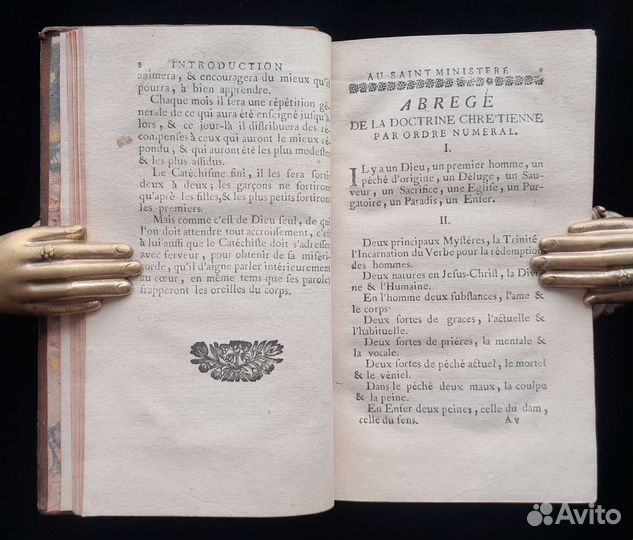 8 INTRODUCTION
animera, & encouragera du mieux qu'il
pourra, à bien apprendre.
Chaque mois il fera une répétition gé-
nerale de ce qui aura été enseigné jusqu'à
lors, & ce jour-là il distribuera des ré-
compenses à ceux qui auront le mieux ré-
pondu, & qui auront été les plus modestes
& les plus assidus.
Le Catéchisme fini, il les fera sortir
deux à deux; les garçons ne sortiront
qu'après les filles, & les plus petits sortiront
les premiers.
Mais comme c'est de Dieu seul, de qui
l'on doit attendre tout accroissement, c'est
à lui aussi que le Catéchiste doit s'adresser
avec ferveur, pour obtenir de sa miséri-
corde, qu'il d'aigne parler intérieurement
au cœur, en même tems que ses paroles
frapperont les oreilles du corps.
AU SAINT MINISTERE 9
ABREGÉ
DE LA DOCTRINE CHRE'TIENNE
PAR ORDRE NUMERAL.
I.
IL y a un Dieu, un premier homme, un
péché d'origine, un Déluge, un Sau-
veur, un Sacrifice, une Eglise, un Pur-
gatoire, un Paradis, un Enfer.
II.
Deux principaux Mystéres, la Trinité
l'Incarnation du Verbe pour la rédemption
des hommes.
Deux natures en Jesus-Christ, la Divi-
ne & l'Humaine.
En l'homme deux substances, l'ame &
le corps.
Deux sortes de graces, l'actuelle &
l'habituelle.
Deux sortes de priéres, la mentale &
la vocale.
Deux sortes de péché actuel, le mortel
& le véniel.
Dans le péché deux maux, la coulpe
& la peine.
En Enfer deux peines, celle du dam,
celle du sens. A v
Avito